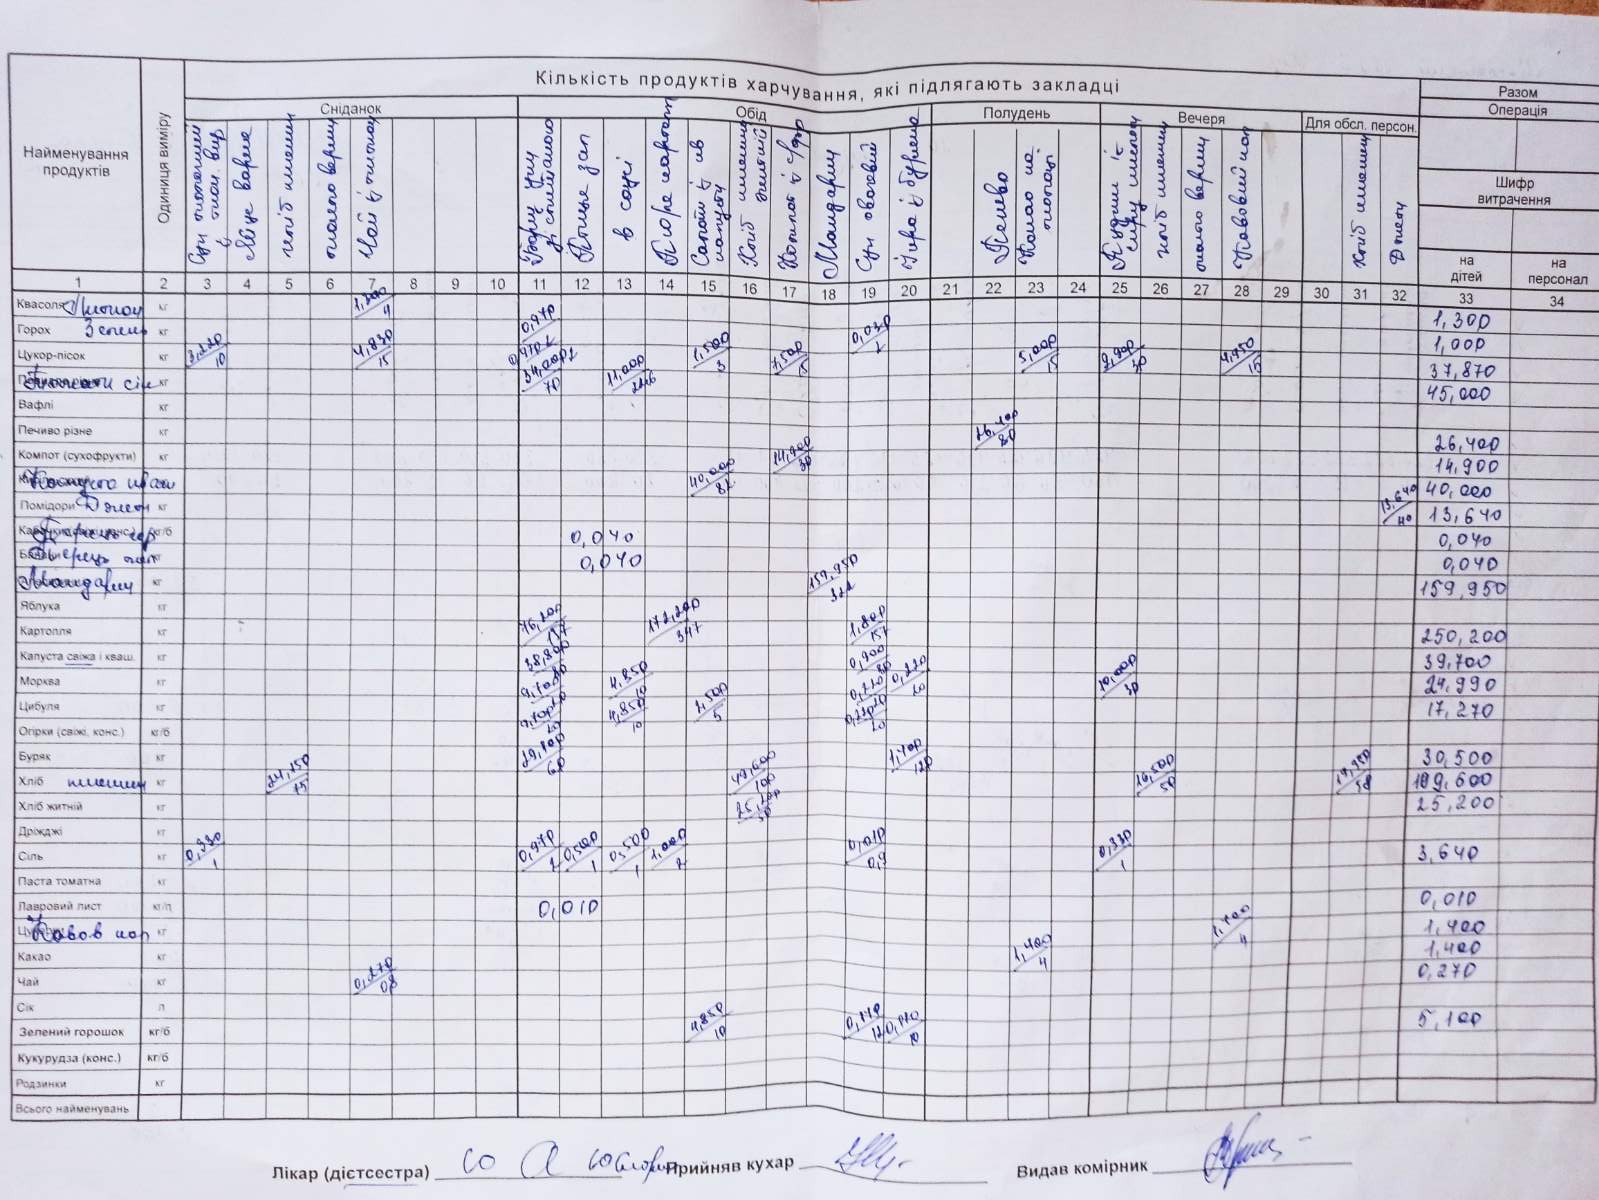 Кількість продуктів харчування, які підлягають закладці
Найменування продуктів
Одиниця виміру
Сніданок
Обід
Полудень
Вечеря
Для обсл. персон.
Разом
Операція
Шифр витрачення
на дітей
на персонал
яйце варене
хліб пшенич
масло вершк
Чай з лимоном
Птиця зап
в соусі
Пюре картоп
Мандарин
Суп овочевий
Ікра з буряка
Печиво
Какао на молоці
хліб пшенич
масло вершк
Кавовий нап
хліб пшенич
Джем
1 2 3 4 5 6 7 8 9 10 11 12 13 14 15 16 17 18 19 20 21 22 23 24 25 26 27 28 29 30 31 32 33 34
Квасоля Лимон кг 1,300/4 1,300
Горох кг 0,970 0,030/1 1,000
Цукор-пісок кг 3,220/10 4,830/15 1,500/3 7,500/15 5,000/15 9,900/30 4,950/15 37,870
Томати сік кг 34,000/70 11,000 45,000
Вафлі кг
Печиво різне кг 26,400/80 26,400
Компот (сухофрукти) кг 14,900/30 14,900
кг 40,000/81 40,000
Помідори Джем кг 13,640/40 13,640
кг/б 0,040 0,040
Перець кг 0,040 0,040
Мандарин кг 159,950/322 159,950
Яблука кг
Картопля кг 76,200/157 172,200/347 1,800/157 250,200
Капуста свіжа і кваш. кг 38,800/80 0,900/80 39,700
Морква кг 9,700/20 4,850/10 0,220/20 0,220/20 10,000/30 24,990
Цибуля кг 9,700/20 4,850/10 2,500/5 0,220/20 17,270
Огірки (свіжі, конс.) кг/б
Буряк кг 29,100/60 1,400/120 30,500
Хліб пшенич кг 24,150/75 49,600/100 16,500/50 19,950/58 109,600
Хліб житній кг 25,200/50 25,200
Дріжджі кг
Сіль кг 0,330/1 0,970/2 0,500/1 0,500/1 1,000/2 0,010/0,9 0,330/1 3,640
Паста томатна кг
Лавровий лист кг/п 0,010 0,010
Кавов нап кг 1,400/4 1,400
Какао кг 1,400/4 1,400
Чай кг 0,270/08 0,270
Сік л
Зелений горошок кг/б 4,850/10 0,140/12 0,110/10 5,100
Кукурудза (конс.) кг/б
Родзинки кг
Всього найменувань
Лікар (дієтсестра)
Прийняв кухар
Видав комірник